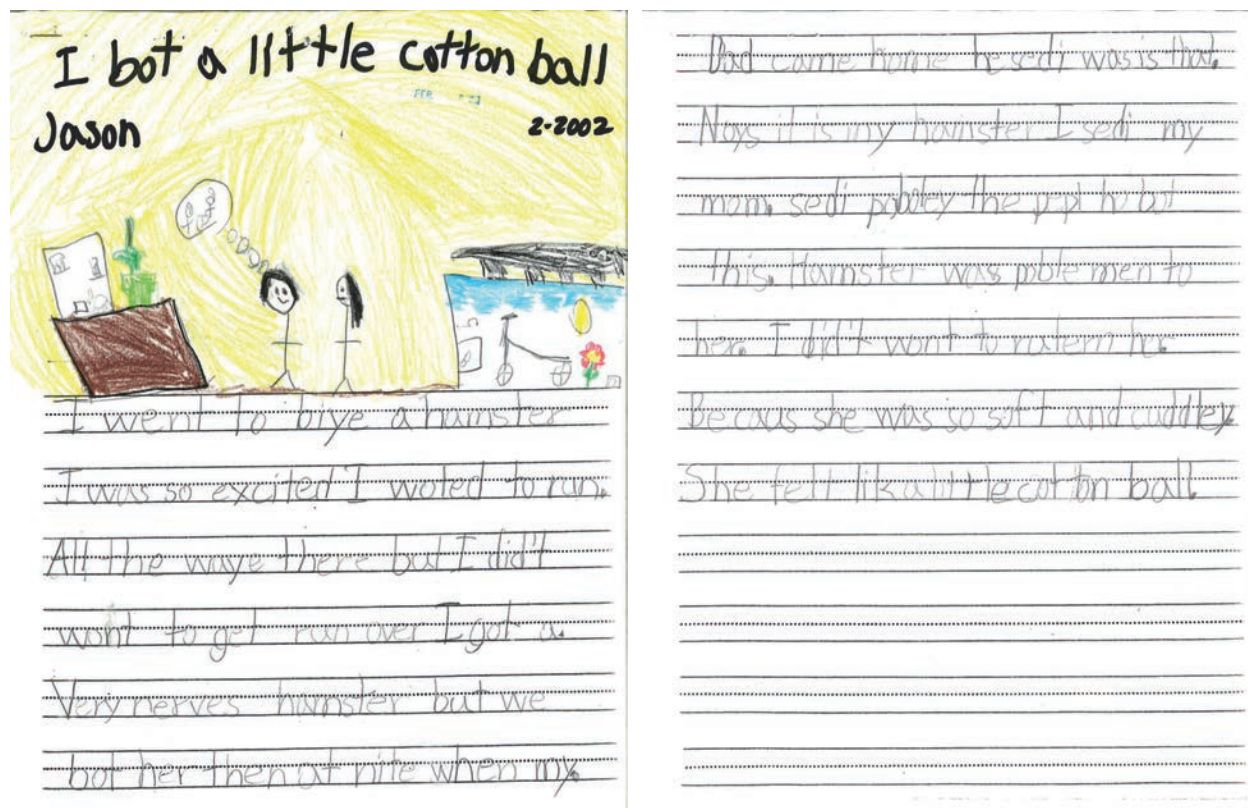 I bot a little cotton ball
Jason
2-2002
FEB
I went to biye a hamster
I was so excited I woted to run.
All the waye there but I did't
wont to get run over I got a.
Very nerves hamster but we
bot her then at nite when my.
Dad came home he sedi was is that.
Nays it is my hamster I sedi my
mom. sedi pobley the pepl ho bot
this. Hamster was poble men to
her. I did't wont to rutern her.
Becaus she was so soft and cuddley.
She felt lik a little cotton ball.